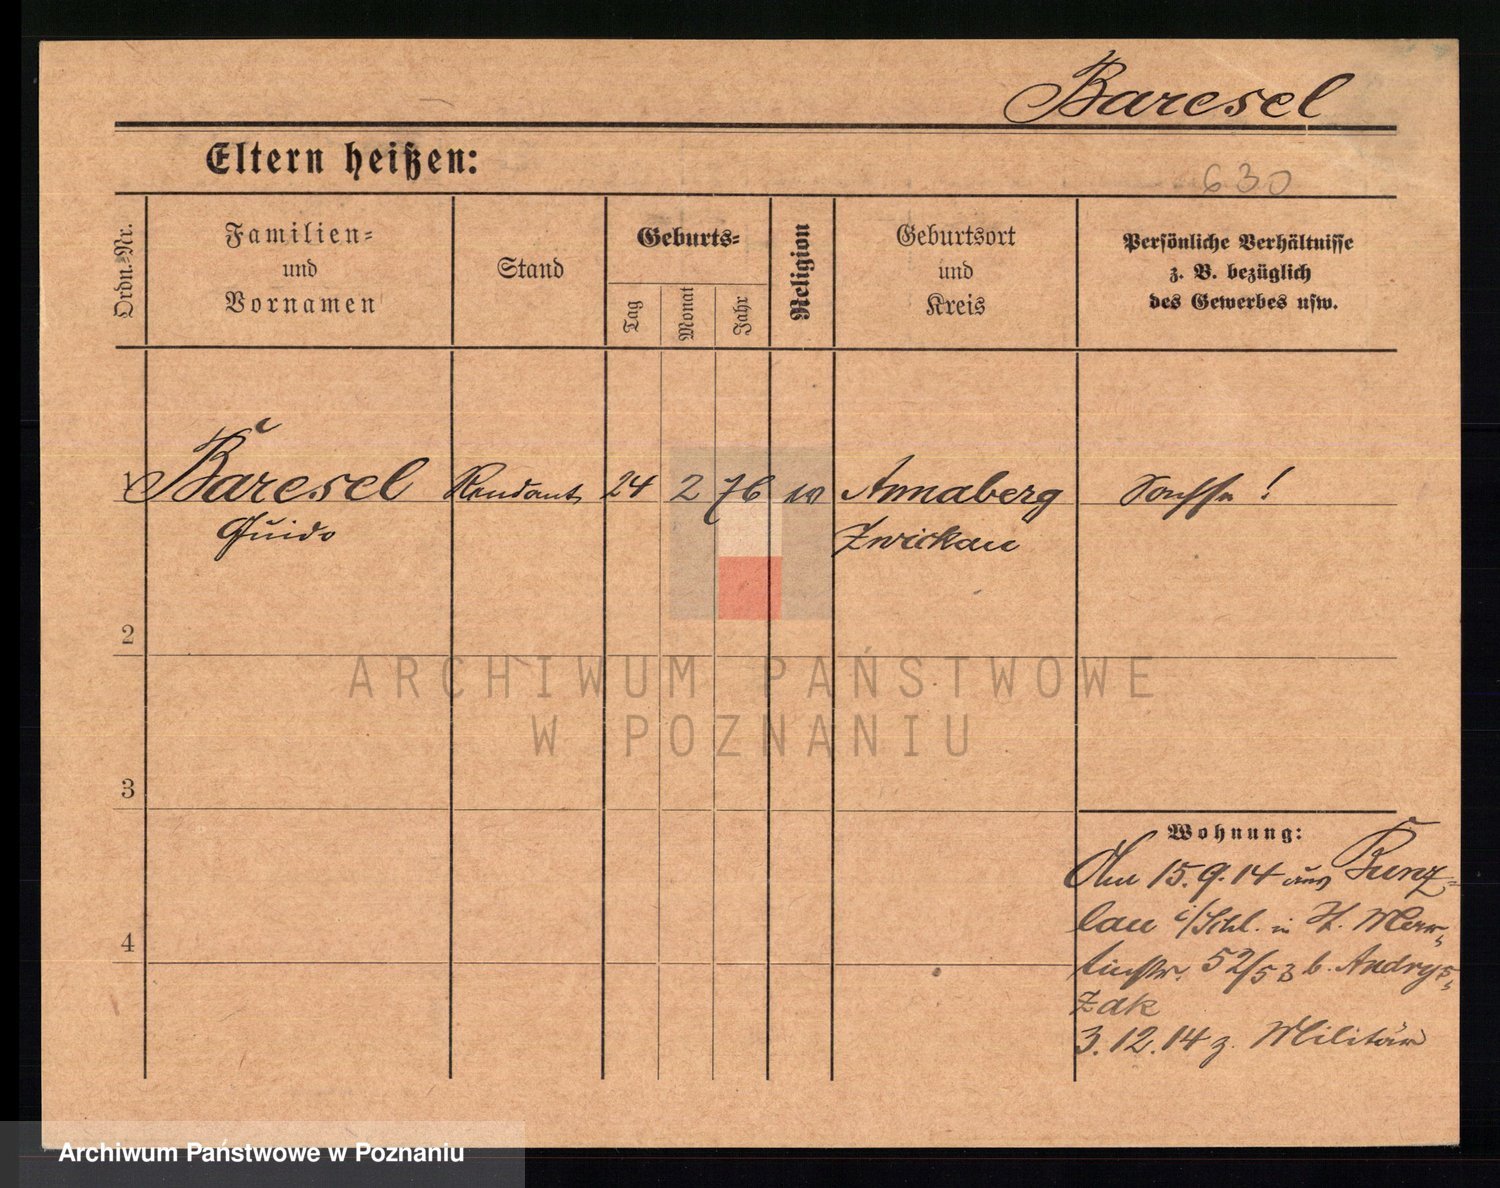 Baresel
Eltern heißen:
630
Ordn.-Nr.
Familien-
und
Vornamen
Stand
Geburts-
Tag
Monat
Jahr
Religion
Geburtsort
und
Kreis
Persönliche Verhältnisse
z. B. bezüglich
des Gewerbes usw.
1 Baresel Rendant 24 2 76 Annaberg Sachse !
Guido Zwickau
2
ARCHIWUM PAŃSTWOWE
W POZNANIU
3
Wohnung:
Am 15.9.14 aus Bunz-
lau i/Schl. in H.
52/53 b. Andrys-
zak
4
3.12.14 z. Militär
Archiwum Państwowe w Poznaniu